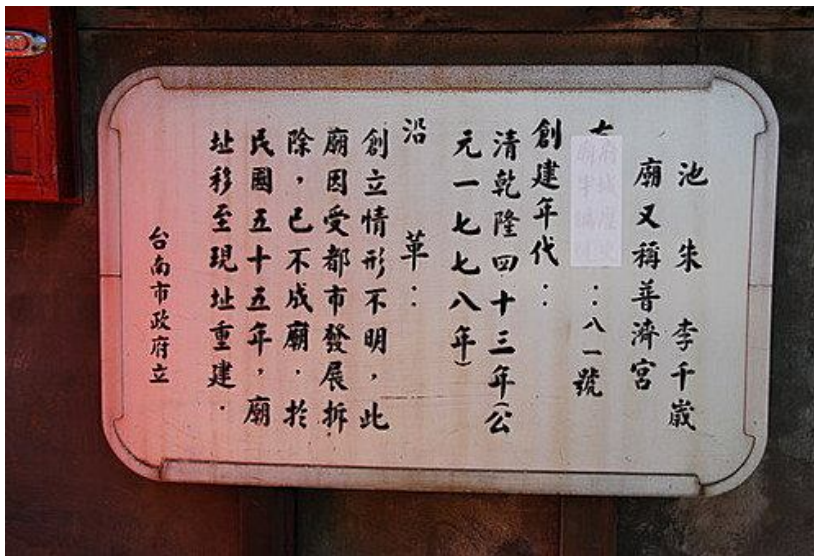 池朱李千歲
廟又稱普濟宮
：八一號
創建年代：
清乾隆四十三年(公
元一七七八年)
沿革：
創立情形不明，此
廟因受都市發展拆
除，已不成廟．於
民國五十五年，廟
址移至現址重建．
台南市政府立